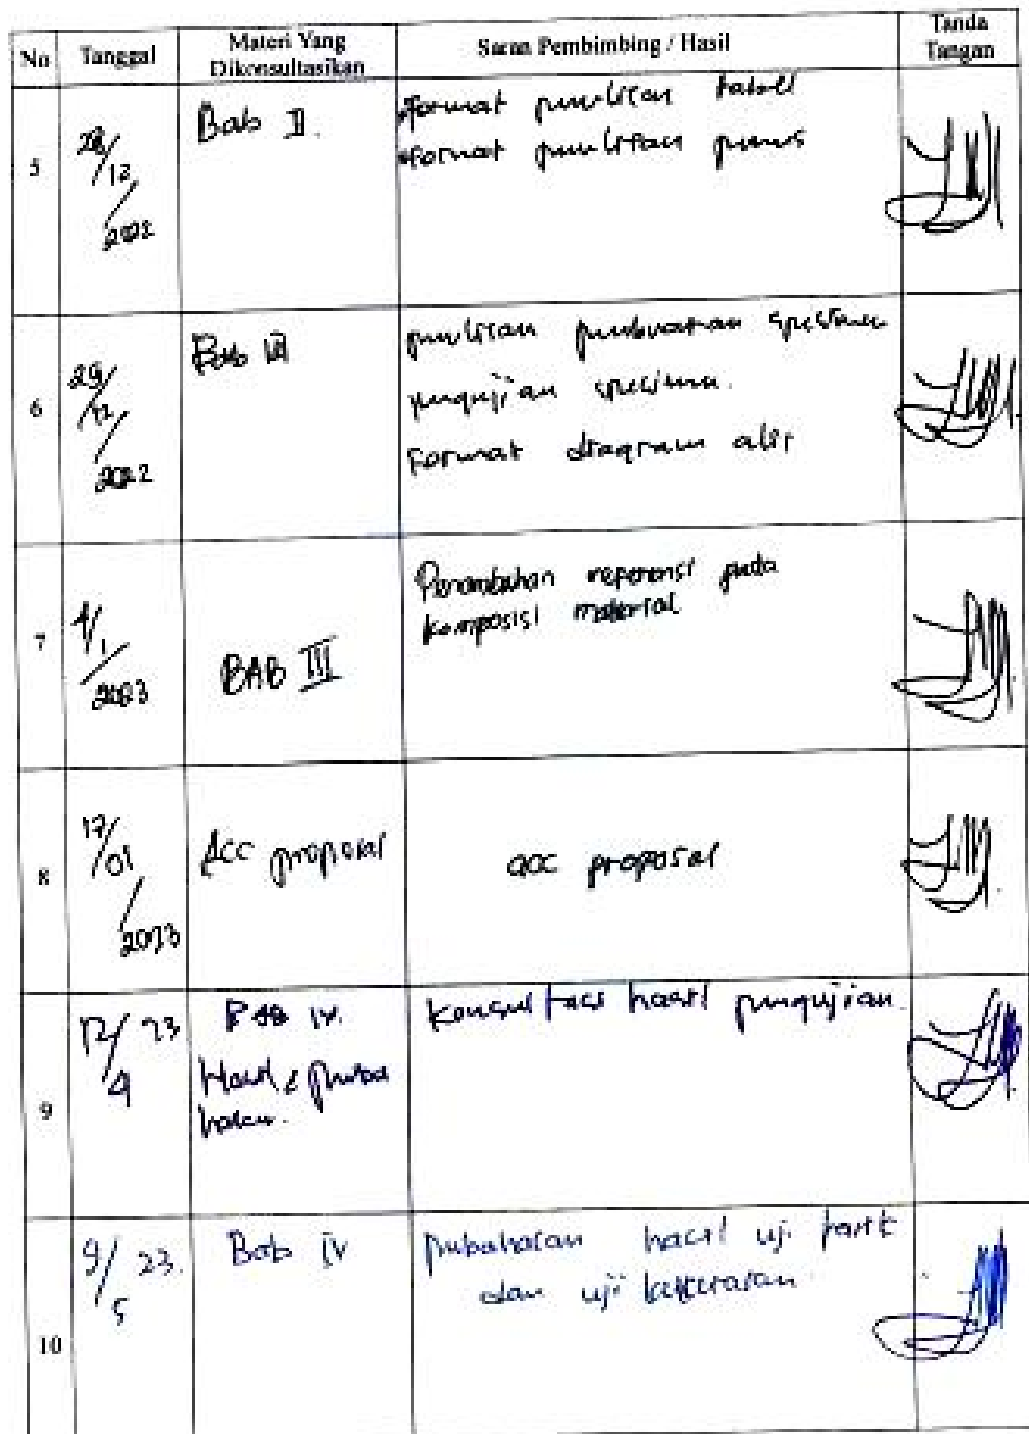 No Tanggal Materi Yang Dikonsultasikan Saran Pembimbing / Hasil Tanda Tangan
5
28/12/2022
Bab II.
format penulisan tabel
format penulisan rumus
6
29/12/2022
Bab III
penulisan pembuatan specimen
pengujian specimen.
Format diagram alir
7
4/1/2023
BAB III
Penambahan referensi pada
komposisi material
8
17/01/2023
Acc proposal
acc proposal
9
12/4 23
Bab IV.
Hasil & pemba
hasan.
Konsultasi hasil pengujian.
10
9/5 23.
Bab IV
pembahasan hasil uji tarik
dan uji kekerasan